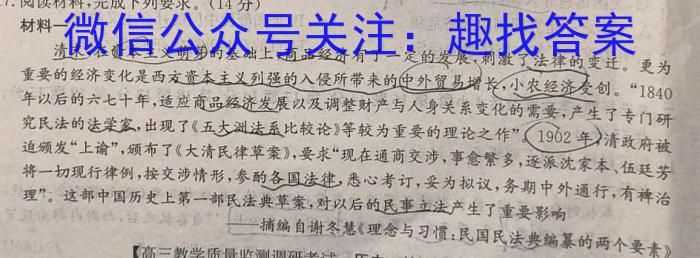 7.阅读材料,完成下列要求。(14分)
材料一
微信公众号关注：趣找答案
清末在资本主义萌芽的基础上,商品经济有了一定的发展,刺激了法律的变迁。更为
重要的经济变化是西方资本主义列强的入侵所带来的中外贸易增长,小农经济受创。“1840
年以后的六七十年,适应商品经济发展以及调整财产与人身关系变化的需要,产生了专门研
究民法的法学家,出现了《五大洲法系比较论》等较为重要的理论之作”。1902年,清政府被
迫颁发“上谕”,颁布了《大清民律草案》,要求“现在通商交涉,事愈繁多,逐派沈家本、伍廷芳
将一切现行律例,按交涉情形,参酌各国法律,悉心考订,妥为拟议,务期中外通行,有裨治
理”。这部中国历史上第一部民法典草案,对以后的民事立法产生了重要影响
——摘编自谢冬慧《理念与习惯:民国民法典编纂的两个要素》
【高三教学质量监测调研考试